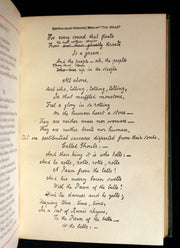 For every sound that floats
From out their ghostly throats
Is a groan.
And the people — ah, the people
up in the steeple
All alone,
And who, tolling, tolling, tolling,
In that muffled monotone,
Feel a glory in so rolling
On the human heart a stone —
They are neither man nor woman —
They are neither brute nor human,
But are pestilential carcases disparted from their souls —
Called Ghouls: —
And their king it is who tolls: —
And he rolls, rolls, rolls, rolls
A Pæan from the bells!
And his merry bosom swells
With the Pæan of the bells!
And he dances and he yells;
Keeping time, time, time,
In a sort of Runic rhyme,
To the Pæan of the bells —
Of the bells: —